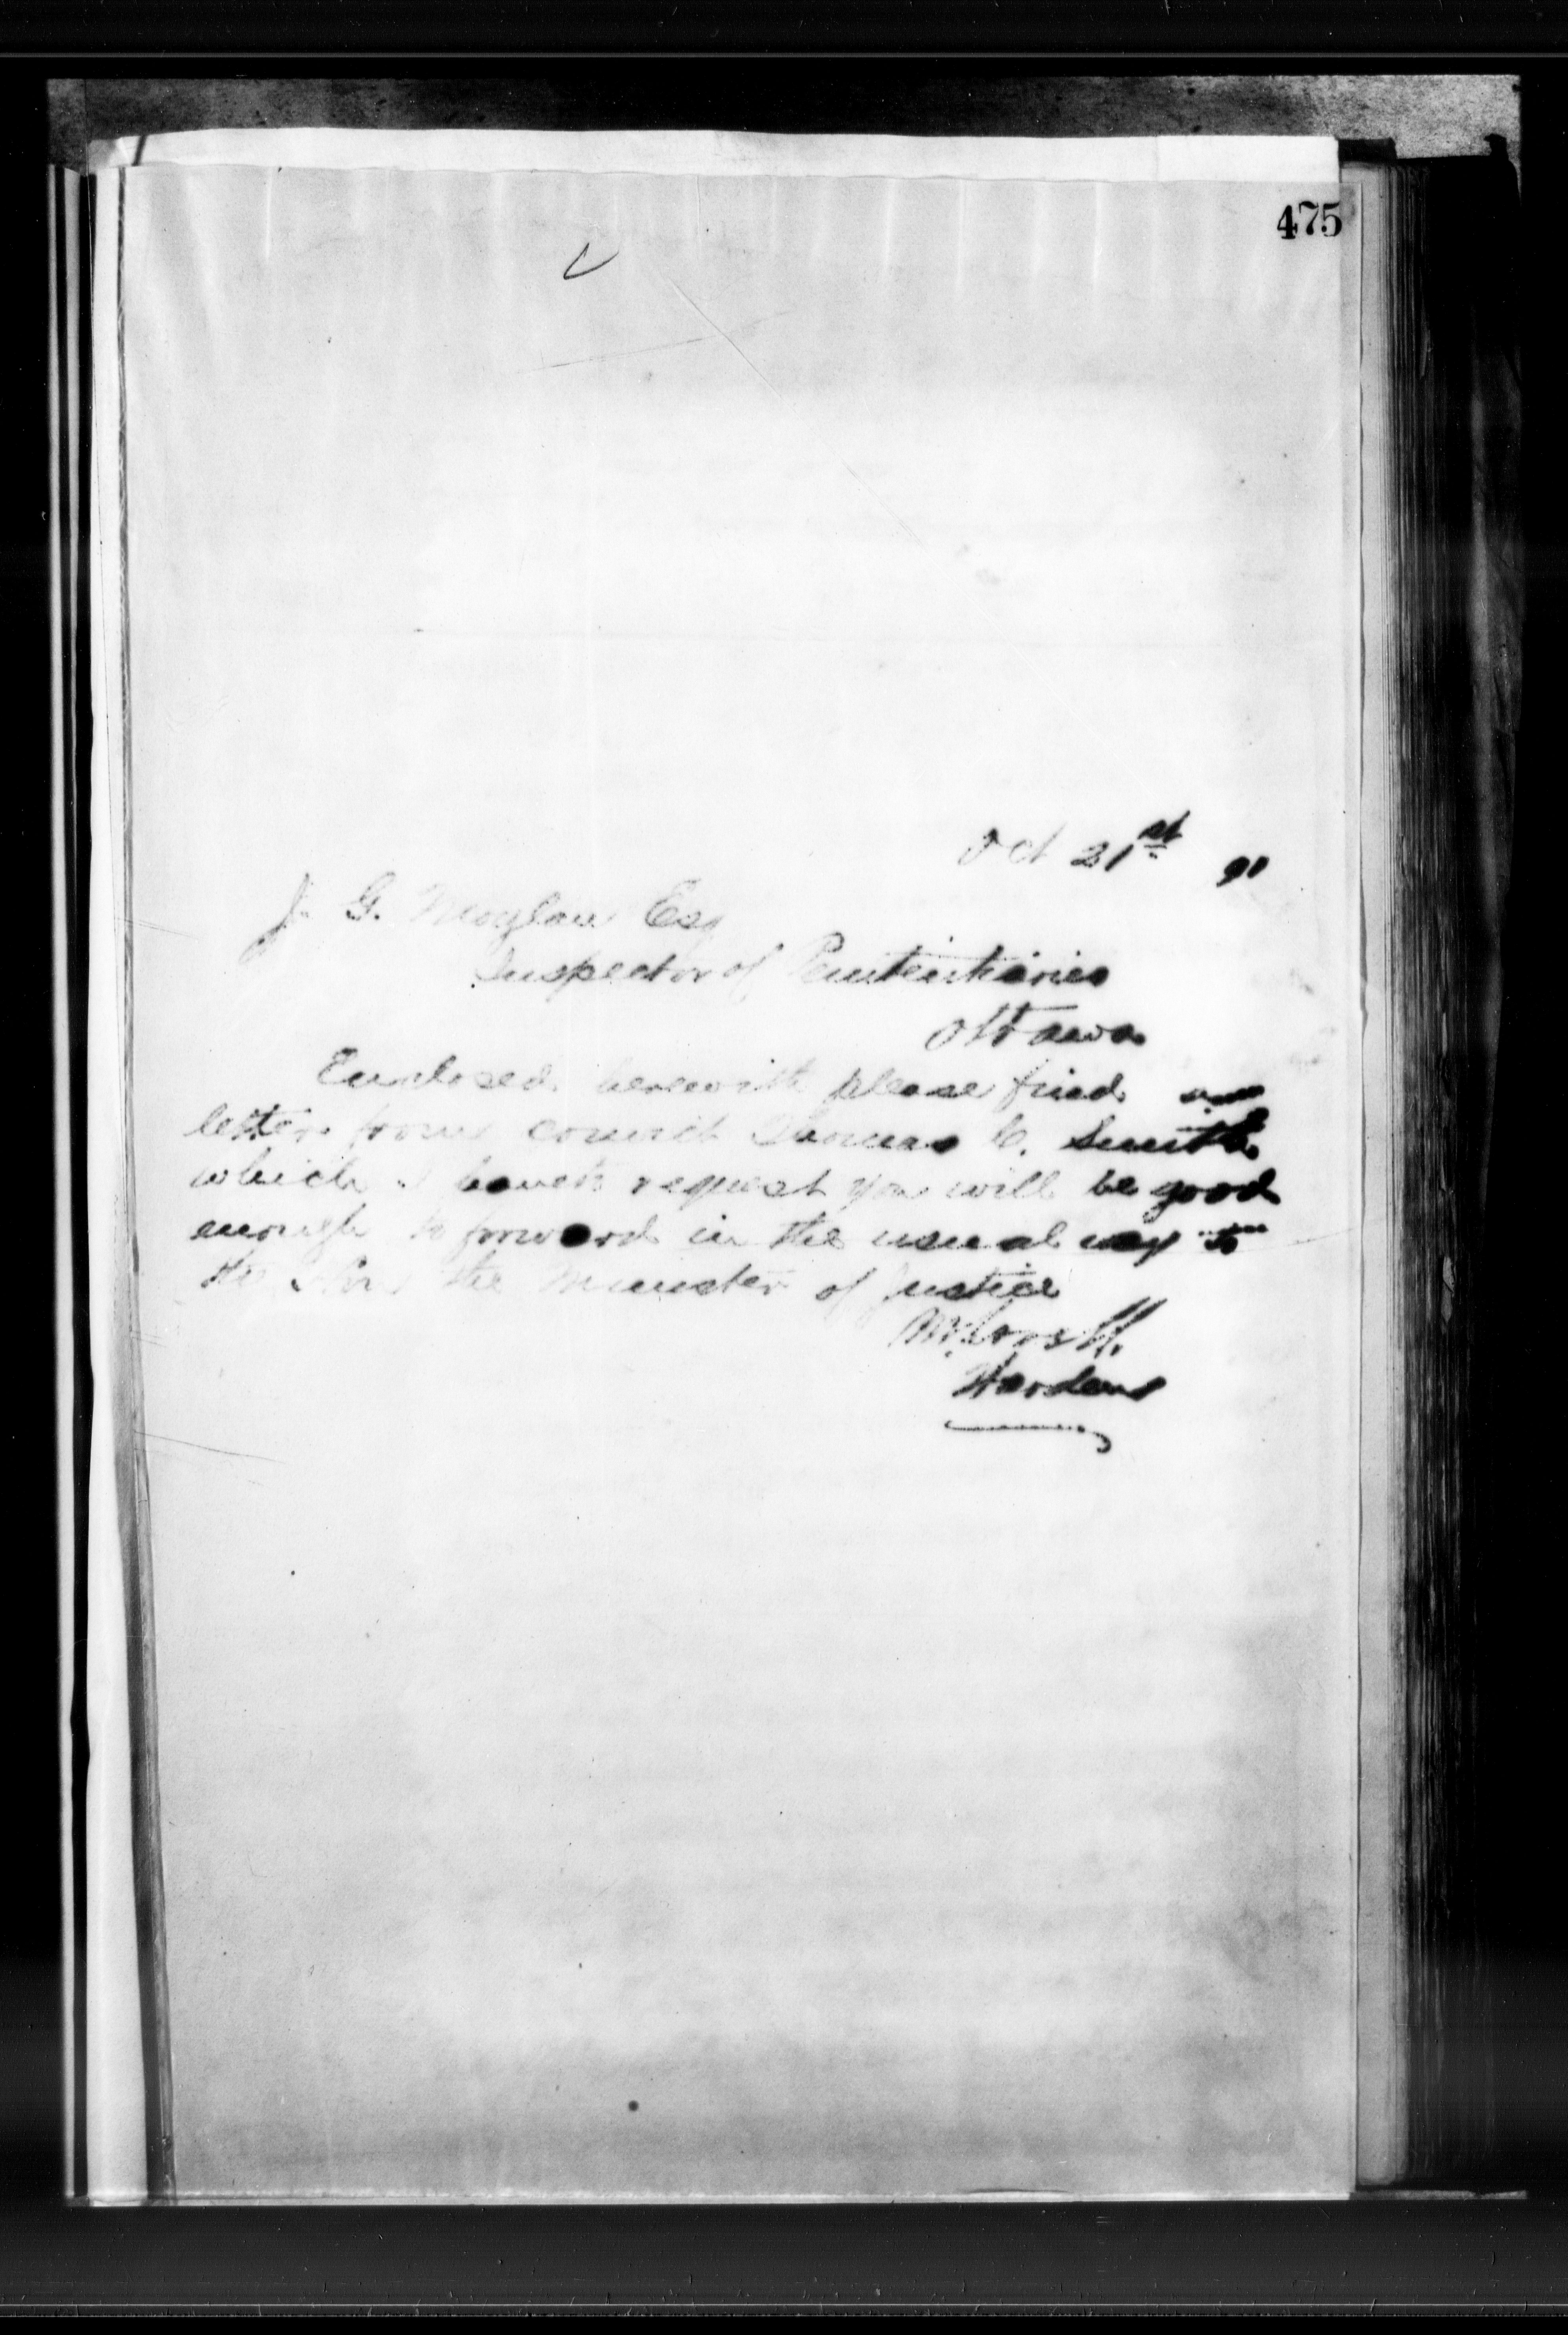 475
Oct 21st 91
J. G. Moylan Esq
Inspector of Penitentiaries
Ottawa
Enclosed herewith please find
letter from convict Thomas C. Smith
which I have to request you will be good
enough to forward in the usual way to
the Hon the Minister of Justice
Warden